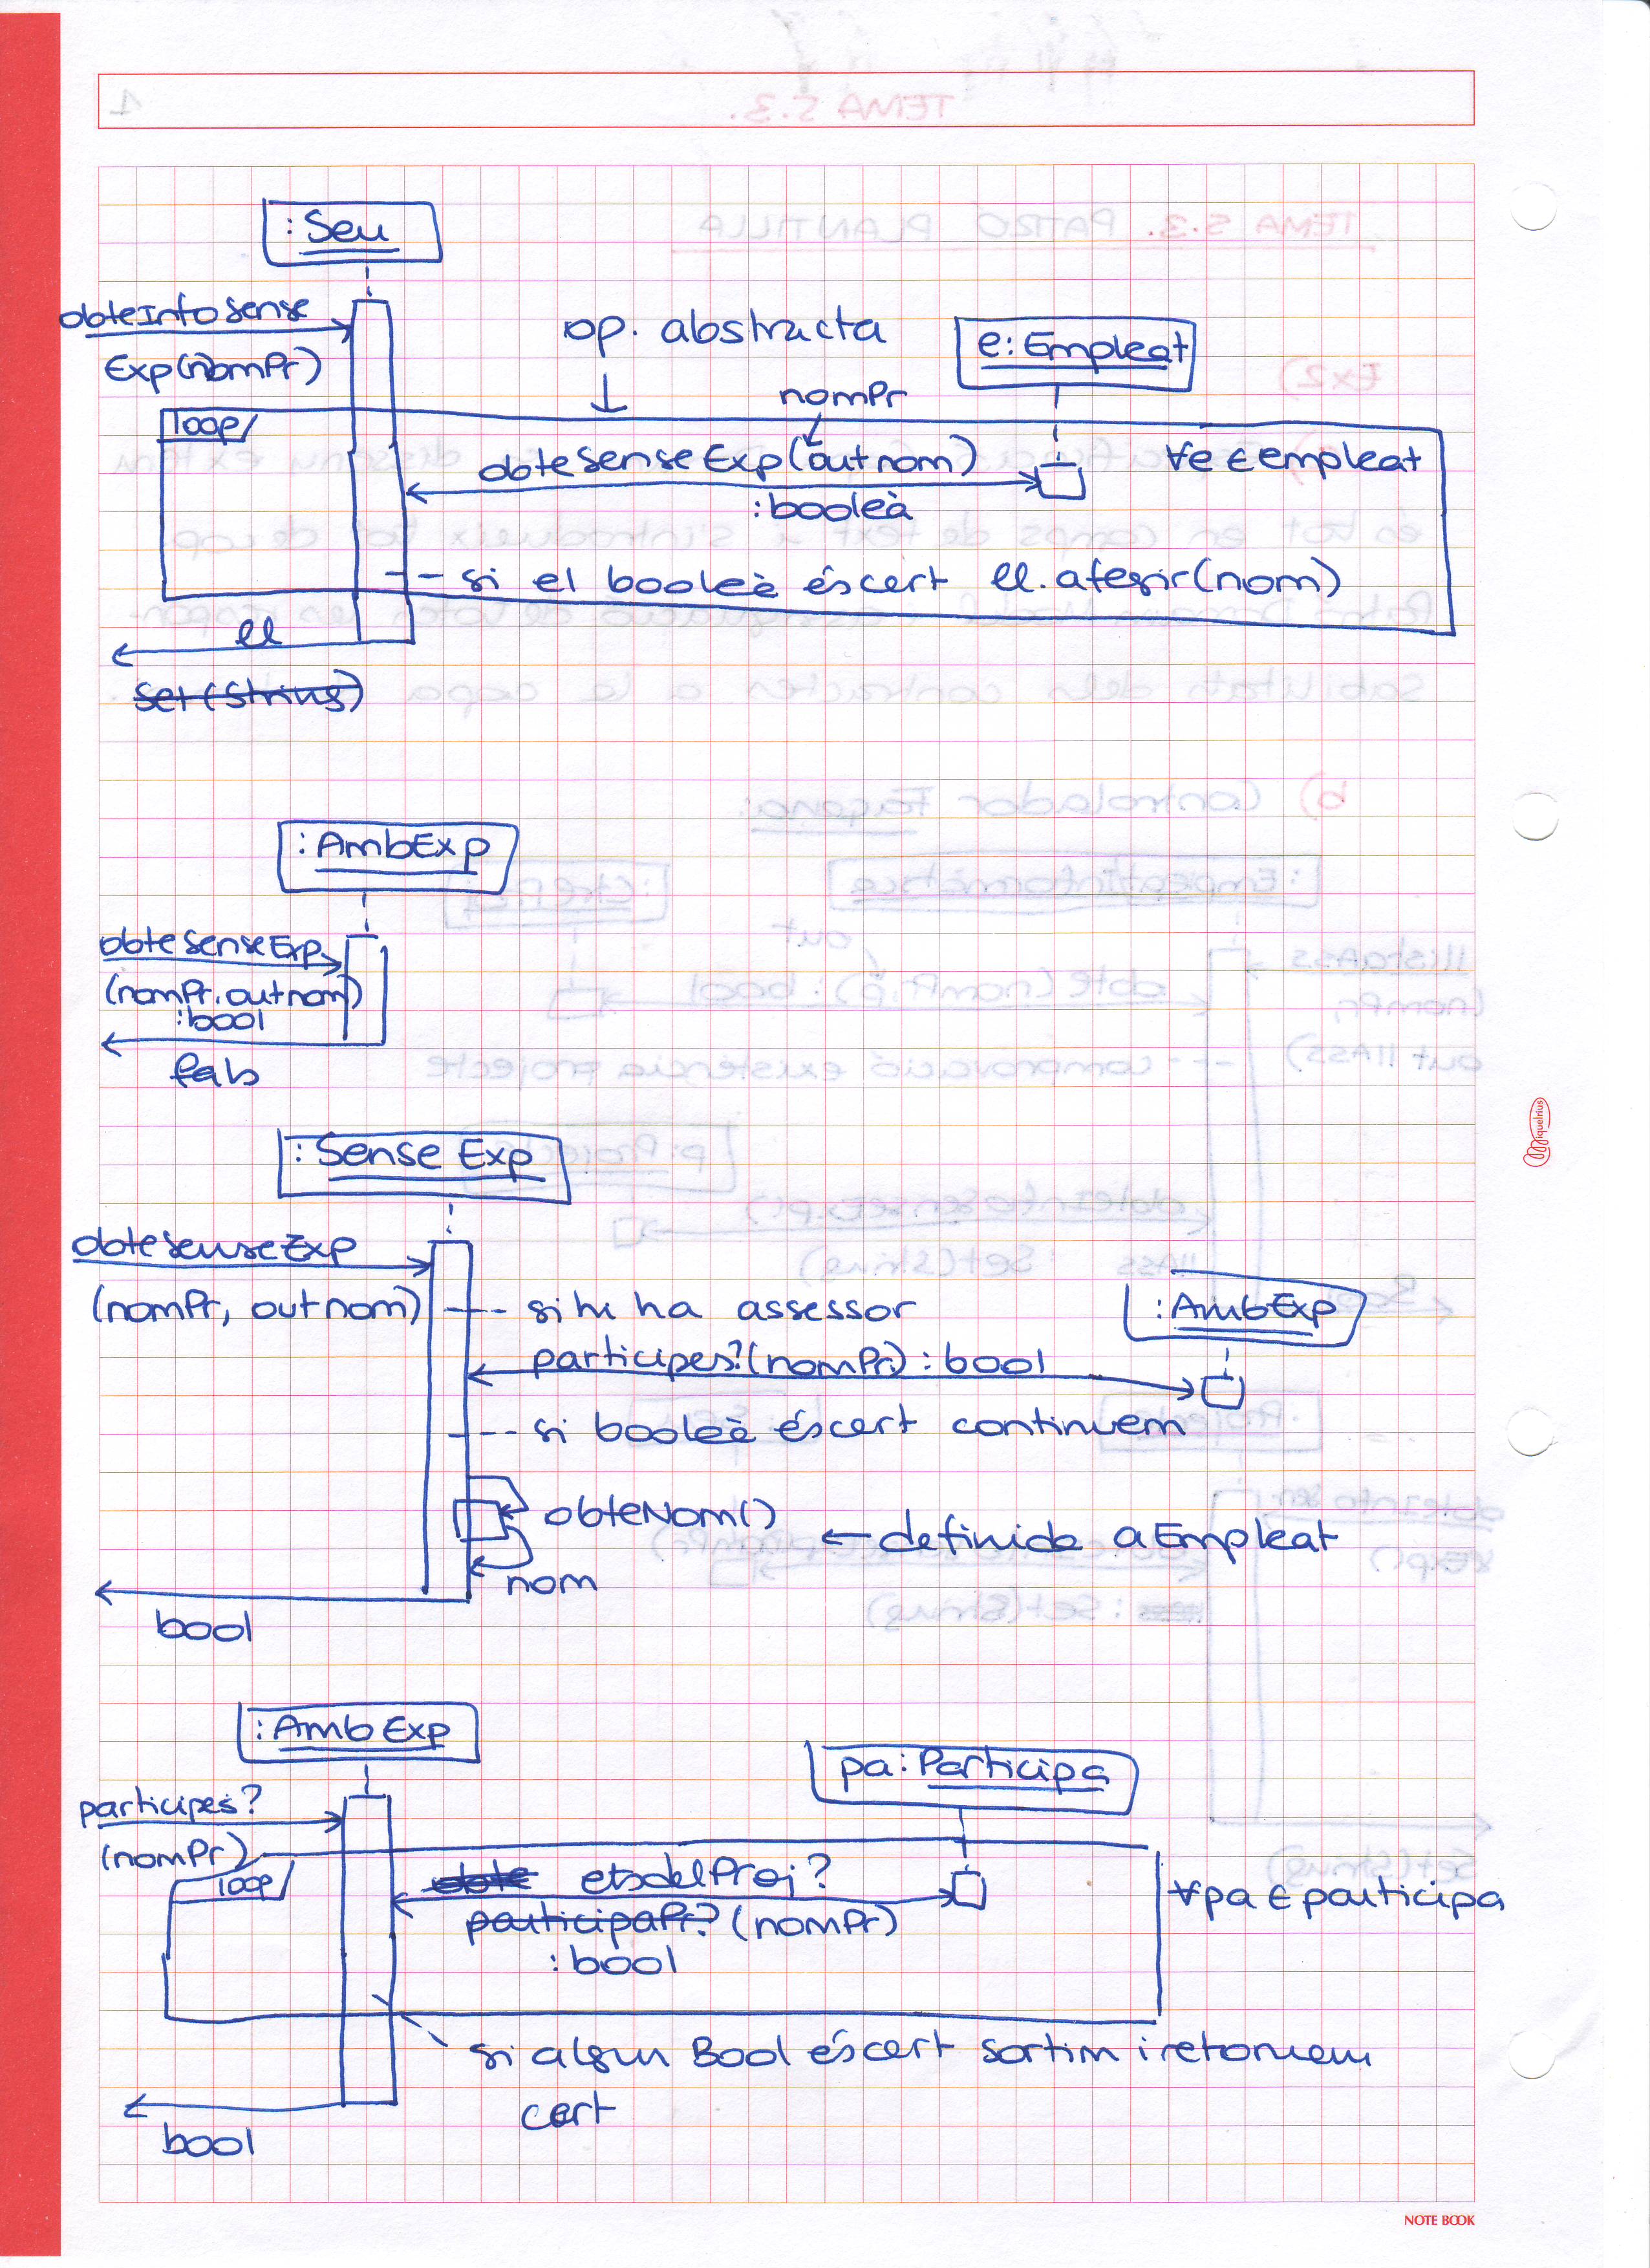 :Seu
obteInfoSense
Exp(nomPr)
op. abstracta
e:Empleat
nomPr
loop
obteSenseExp(out nom)
:booleà
∀e ∈ empleat
-- si el booleà és cert ll.afegir(nom)
ll
Set(String)
:AmbExp
obteSenseExp
(nomPr, out nom)
:bool
fals
:Sense Exp
obteSenseExp
(nomPr, out nom)
--- si hi ha assessor
:AmbExp
participes?(nomPr) : bool
--- si booleà és cert continuem
obteNom()
← definida a Empleat
nom
bool
:Amb Exp
pa:Participa
participes?
(nomPr)
loop
obte etsdelProj?
participaPr? (nomPr)
:bool
∀pa ∈ participa
si algun Bool és cert sortim i retornem
cert
bool
miquelrius
NOTE BOOK